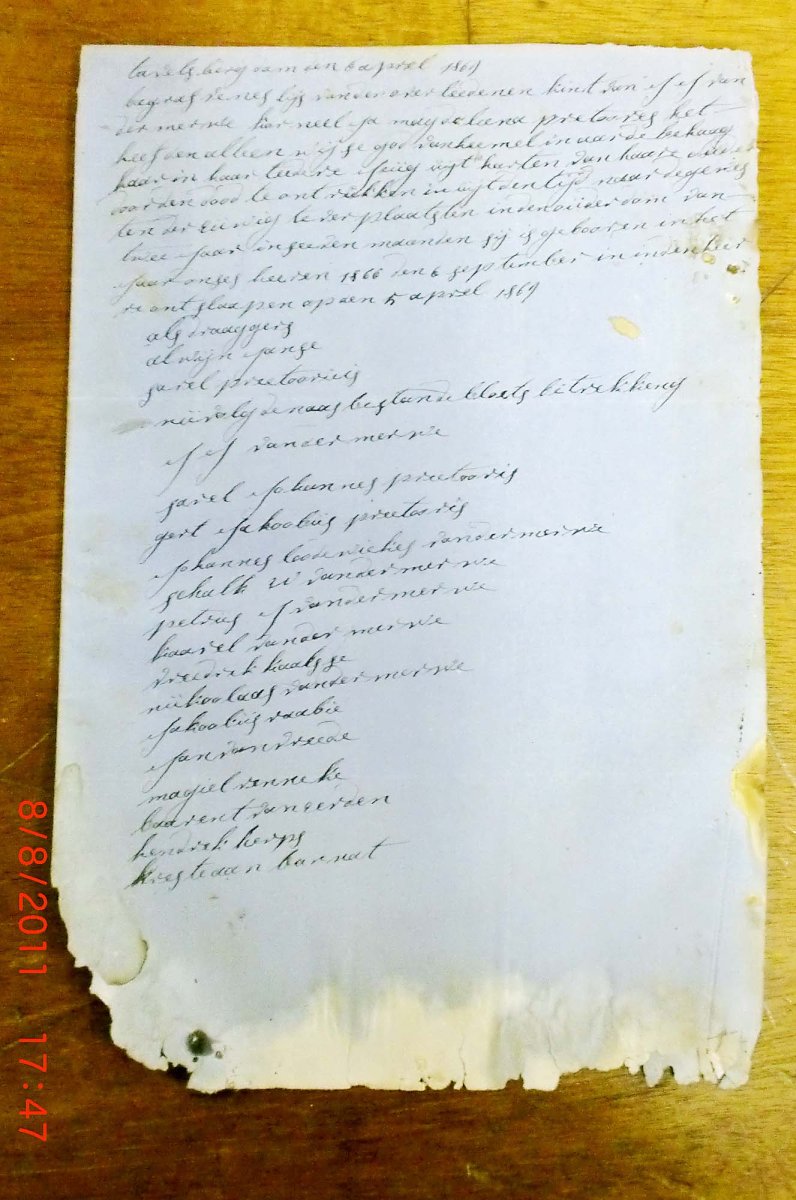 tavelsberg dam den 6 aprel 1869
begrafvenes lijs van der over leedenen kint van J J van
der merwe kor neel ja magdaleena pretooris het
heef den alleen wijse god van heemel in aarde behaag
haar in haar teedere Jeug uyt harten van haare
oorden dood te ont rukken in uyt den tijd naar de
ten der euwig te der plaatsten in den ouderdom van
twee Jaar in seeven maanden sij is gebooren in het
Jaar onses heeren 1866 den 6 september in in den heer
re ontslaapen op den 5 aprel 1869
als draaggers
alwijn Janse
sarel preetoorieis
naas bestande bloets betrekkeng
J J vander merwe
sarel Johannes preetooris
gert Jakoobus preetooris
Johannes loodewickes vander merwe
schalk W vander merwe
petrus J vander merwe
kaarel vander merwe
vreedrek kaalsse
nikoolaas vander merwe
Jakoobus raabie
Jan van vreede
magiel venneke
baarent van eerden
hendrek herps
kresteaan barnat
8/8/2011 17:47